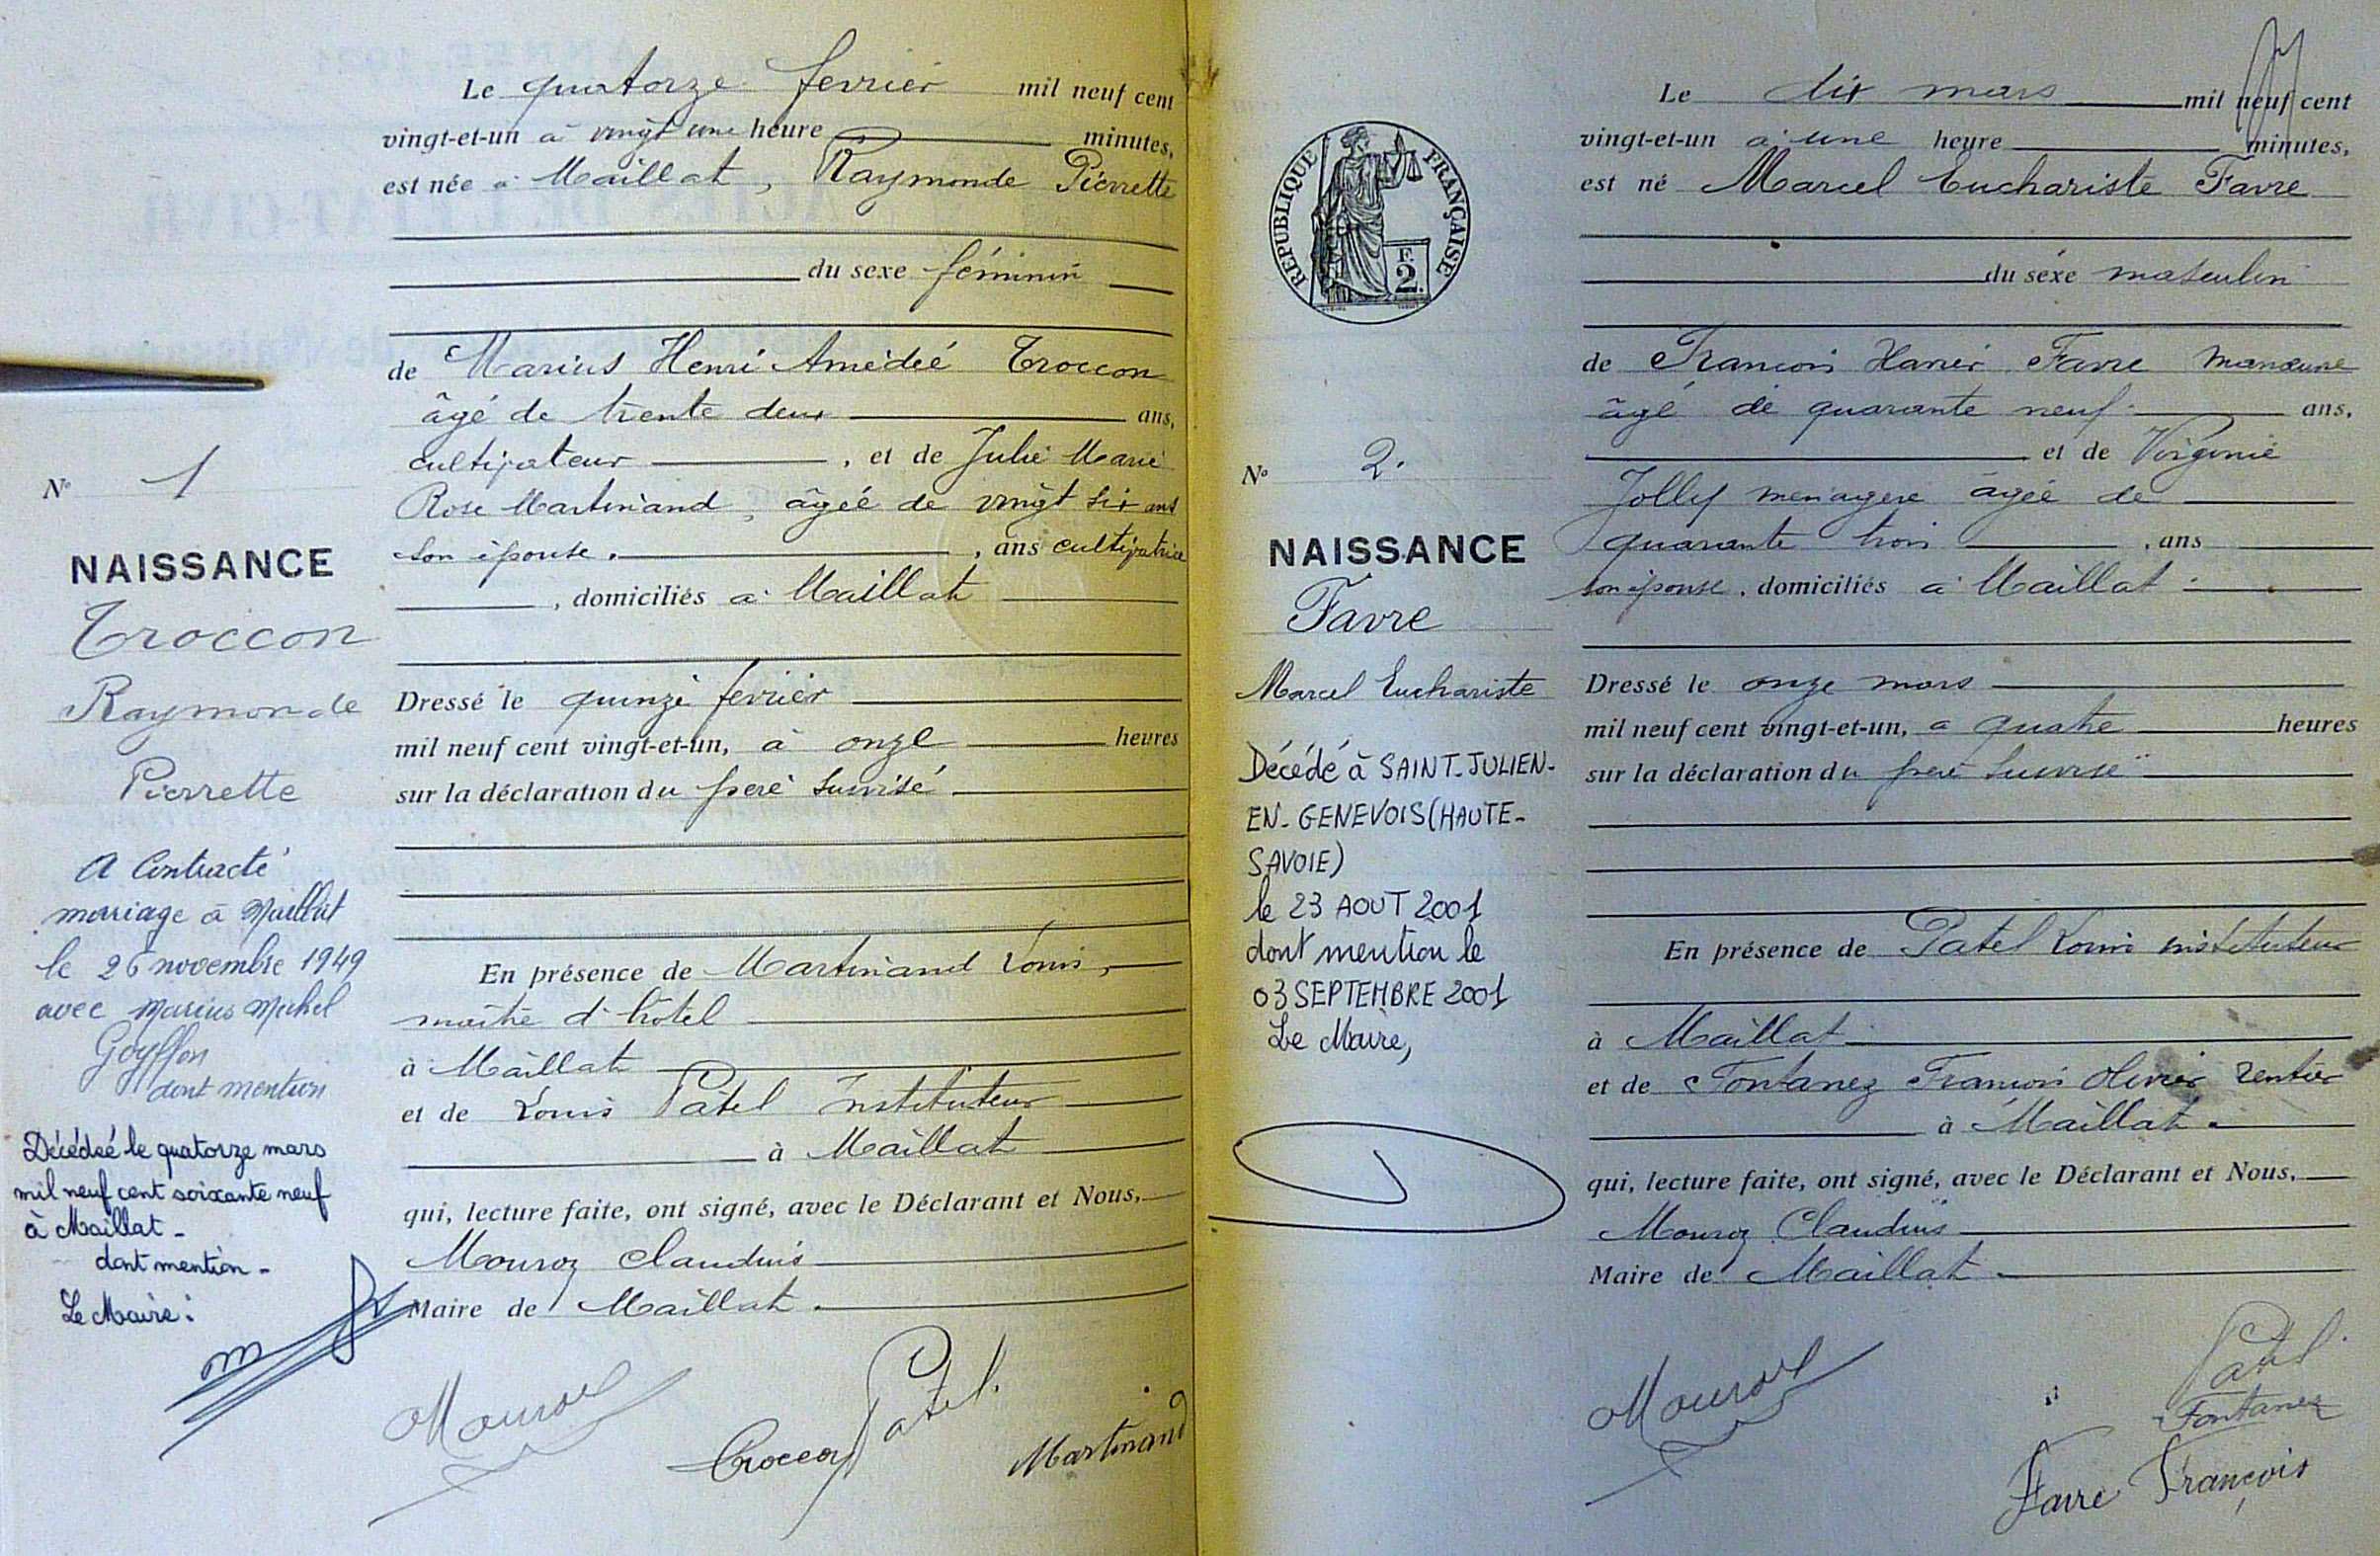 Le quatorze fevrier mil neuf cent
vingt-et-un à vingt une heure minutes,
est née à Maillat, Raymonde Pierrette
du sexe féminin
de Marius Henri Amédéé Troccon
âgé de trente deux ans,
cultivateur, et de Julie Marie
Rose Martinand, âgée de vingt six ans
son épouse. , ans cultivatrice
, domiciliés à Maillat
Dressé le quinze fevrier
mil neuf cent vingt-et-un, à onze heures
sur la déclaration du pere susvisé
En présence de Martinand Louis,
maitre d'hôtel
à Maillat
et de Louis Patel Instituteur
à Maillat
qui, lecture faite, ont signé, avec le Déclarant et Nous,
Mouroz Claudius
Maire de Maillat.
Mouroz
Troccon
Patel.
Martinand
No 1
NAISSANCE
Troccon
Raymonde
Pierrette
A Contracté
mariage à Maillat
le 26 novembre 1949
avec Marius Michel
Goyffon
dont mention
Décédée le quatorze mars
mil neuf cent soixante neuf
à Maillat -
dont mention -
Le Maire:
REPUBLIQUE FRANÇAISE
F.
2.
No 2.
NAISSANCE
Favre
Marcel Euchariste
Décédé à SAINT-JULIEN-
EN-GENEVOIS (HAUTE-
SAVOIE)
le 23 AOUT 2001
dont mention le
03 SEPTEMBRE 2001
Le Maire,
Le dix mars mil neuf cent
vingt-et-un à une heure minutes,
est né Marcel Euchariste Favre
du sexe masculin
de Francois Xavier Favre manœuvre
âgé de quarante neuf ans,
et de Virginie
Jolly menagere âgée de
quarante trois , ans
son épouse, domiciliés à Maillat
Dressé le onze mars
mil neuf cent vingt-et-un, a quatre heures
sur la déclaration du pere susvisé
En présence de Patel Louis instituteur
à Maillat
et de Fontanez Francois Olivier rentier
à Maillat.
qui, lecture faite, ont signé, avec le Déclarant et Nous,
Mouroz Claudius
Maire de Maillat
Mouroz
Patel.
Fontanez
Favre François